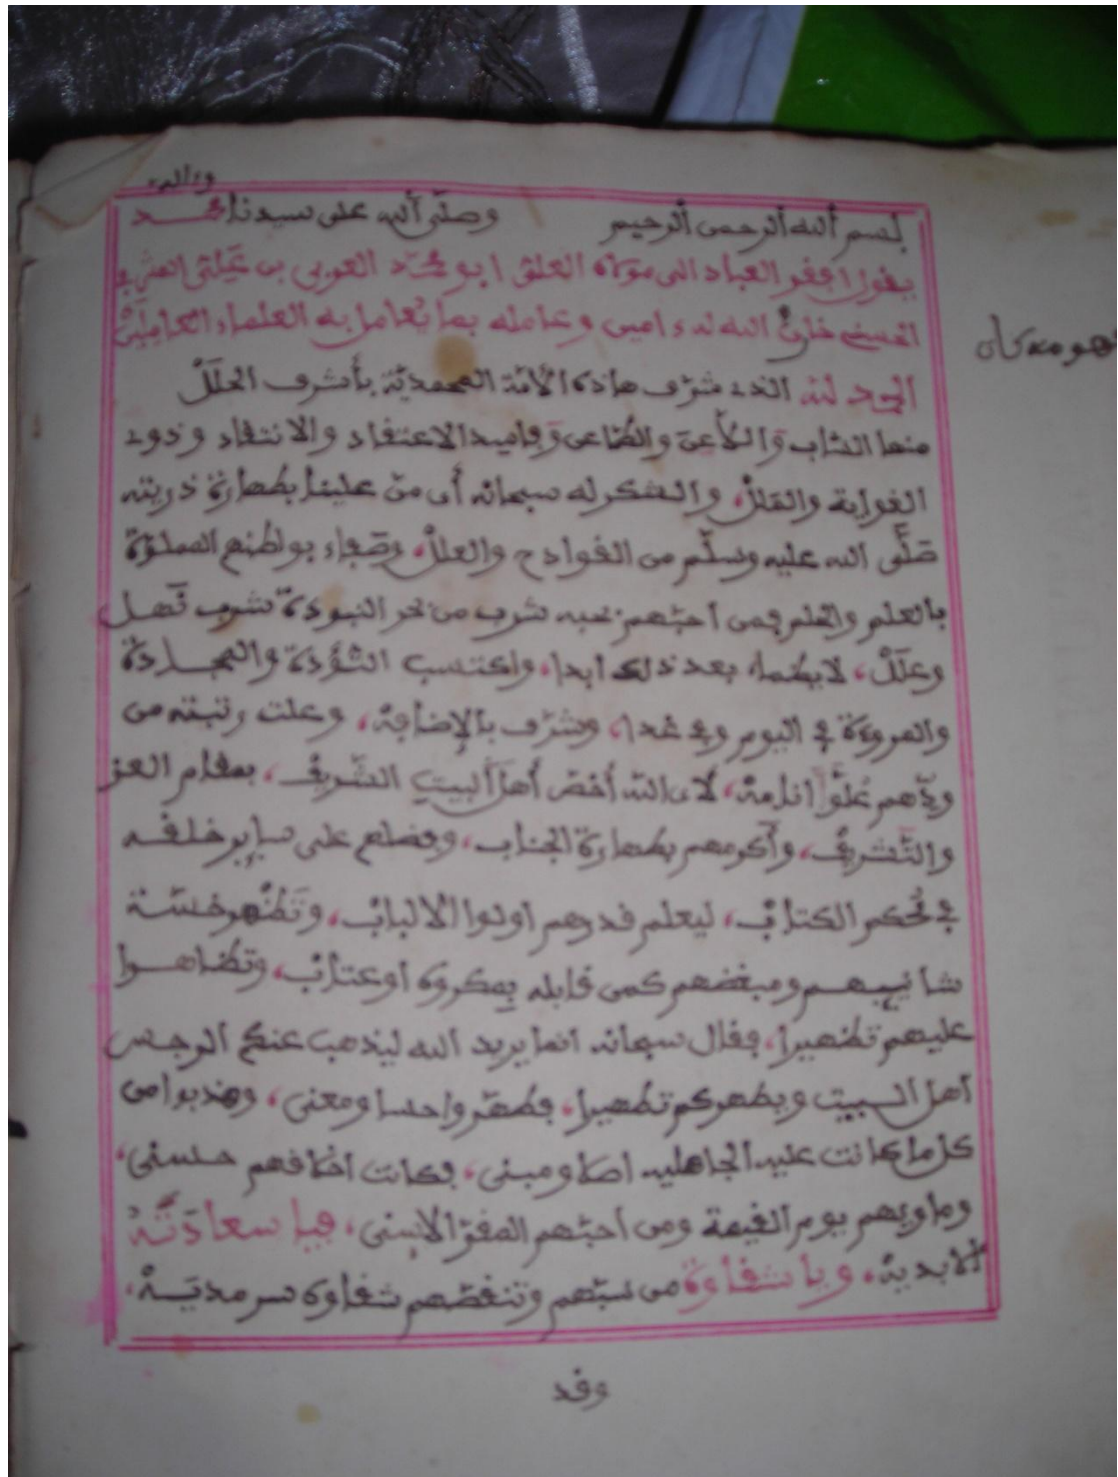 وءاله
بسم الله الرحمن الرحيم وصلى الله على سيدنا محمد
يقول افقر العباد الى مولاه العلي ابو محمد العربي بن
الحسني كان الله له ءامين وعامله بما يُعامل به العلماء العاملين
الحمد لله الذي شرّف هاذه الأمة المحمديّة بأشرف الحلَلْ
والطّاعن وفاسد الاعتقاد والانتقاد وذوي
الغواية والمَلل، والشكر له سبحانه أن منّ علينا بطهارة ذريته
صَلَّى الله عليه وسلّم من القوادح والعلل، وصفاء بواطنهم المملوّة
بالعلم والحلم فمن احبّهم نحبه شرب من بحر النبوءة شرب نَهل
وعلَلْ، لا يظماء بعد ذلك ابدا، واكتسب التُّؤدة والمجادة
والمروءة في اليوم وفي غدا، وتشرّف بالإضافهْ، وعلت رتبته من
ودّهم عُلُوّا انافهْ، لان الله أخصّ أهل البيتِ الشّريفْ، بمقام العز
والتّشريفْ، وأكرمهم بطهارة الجنابْ، وفضلهم على ساير خلقه
في مُحكم الكتابْ، ليعلم قدرهم اولوا الالبابْ، وتَظْهر خسّة
شانيهم ومبغضهم كمن قابله بمكروه او عتابْ، وتظاهوا
عليهم تطهيرا، فقال سبحانه انما يريد الله ليذهب عنكم الرجس
اهل البيت ويطهركم تطهيرا، فطهّروا حسا ومعنى، وهذبوا من
كل ما كانت عليه الجاهليه اصلا ومبنى، فكانت اخلاقهم حسنى،
وماويهم يوم القيمة ومن احبّهم المقرّ الاسنى، فيا سعادَتَهُ
الابديهْ، ويا شقاوة من سبّهم وتنقصّهم شقاوة سرمديّهْ،
وقد